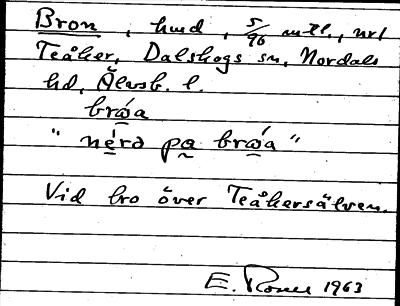 Bron, hmd, 5/96 mtl., nr1
Teåker, Dalskogs sn, Nordals
hd, Älvsb. l.
brωa
"nerə pa brωa"
Vid bro över Teåkersälven.
E. Rosell 1963